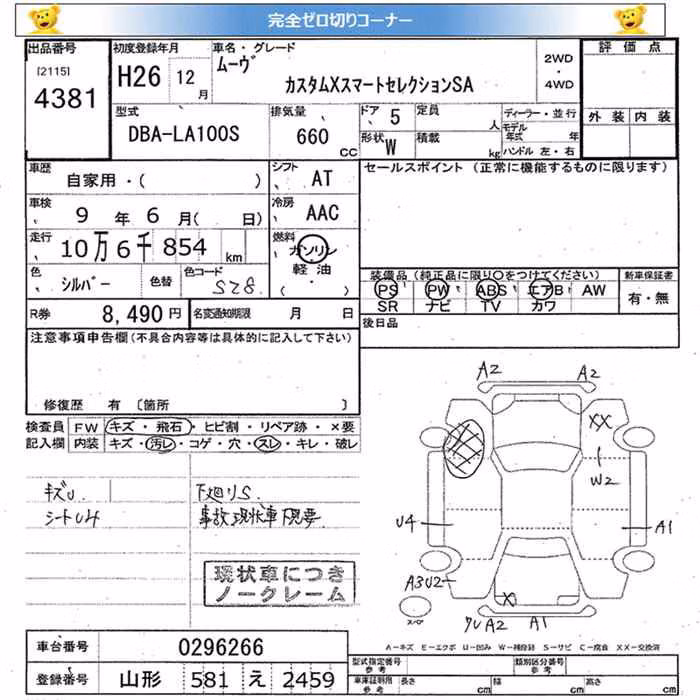 完全ゼロ切りコーナー
出品番号 [2115] 4381
初度登録年月 H26 12月
車名・グレード ムーヴ カスタムXスマートセレクションSA
2WD・4WD
評価点
外装 内装
型式 DBA-LA100S
排気量 660 CC
ドア 5
形状 W
定員 人
積載 kg
ディーラー・並行
モデル年式 年
ハンドル 左・右
車歴 自家用・( )
シフト AT
セールスポイント (正常に機能するものに限ります)
車検 9年 6月( 日)
冷房 AAC
走行 10万6千854 km
燃料 ガソリン 軽油 ( ・ )
色 シルバー 色替
色コード S28
装備品 (純正品に限り○をつけてください)
PS PW ABS エアB AW
SR ナビ TV カワ
新車保証書 有・無
R券 8,490円
名変通知期限 月 日
後日品
注意事項申告欄 (不具合内容等は具体的に記入して下さい)
修復歴 有 〔箇所 〕
検査員記入欄
FW キズ・飛石・ヒビ割・リペア跡・×要
内装 キズ・汚レ・コゲ・穴・スレ・キレ・破レ
キズU
シートUみ
下廻りS
事故現状車 下見要
現状車につき
ノークレーム
A2 A2
XX
W2
U4 A1
A3U2
X
スペア
クU A2 A1
A-キズ E-エクボ U-凹み W-補修跡 S-サビ C-腐食 XX-交換済
車台番号 0296266
登録番号 山形 581 え 2459
型式指定番号 参考
類別区分番号 参考
車庫証明用 参考 長さ cm 幅 cm 高さ cm